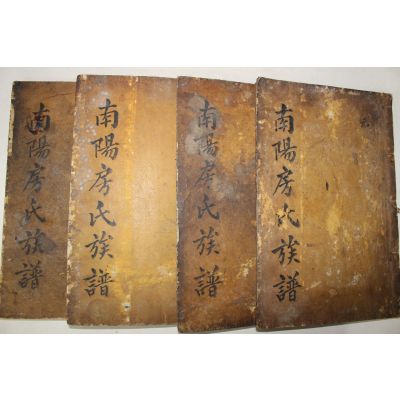 南陽房氏族譜
南陽房氏族譜
南陽房氏族譜
南陽房氏族譜